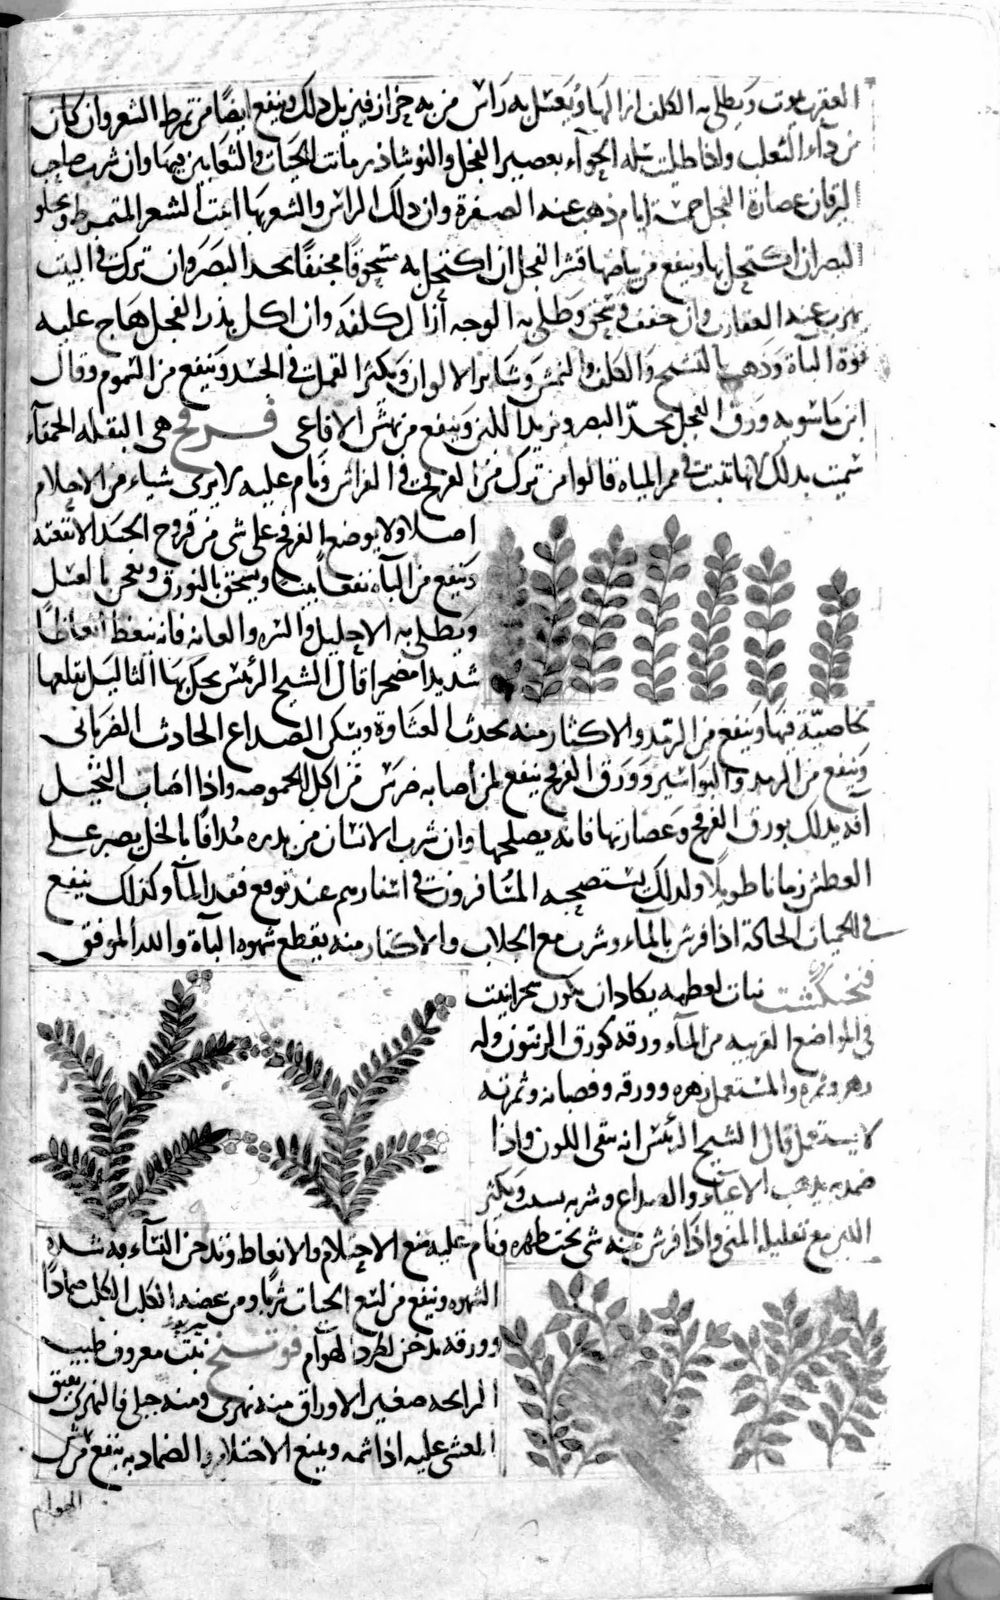 العقرب موت ويطلى به الكلف ازالها ويغسل به راس من به حزاز فيزيل ذلك وينفع ايضًا من تمرط الشعر وان كان
من دآء الثعلب واذا طليت سله الحوآء بعصير الفجل والنوشاذر ماتت الحيات والثعابين فيها وان شرب صاحب
اليرقان عصارة الفجل خمسة ايام ذهب عنه الصفرة وان دلك الراس والشعر بها انبت الشعر المتمرط ويجلو
البصر ان اكتحل بها وينفع من بياضها قشر الفجل ان اكتحل به مسحوقًا مجففًا يحد البصر وان ترك في البيت
يهرب عنه العقارب وان جفف وسحق وطلى به الوجه أزال كلفه وان اكل بذر الفجل هاج عليه
قوة الباة وذهب بالتشنج والكلف والنمش وسائر الالوان ويكثر القمل في الجسد وينفع من السموم وقال
ابن ماسويه ورق الفجل يحدّ البصر ويزيد اللبن وينفع من نهش الافاعى فرفخ هى البقلة الحمقآء
سميت بذلك لانها تنبت في ممر المياه قالوا من ترك من الفرفخ في الفراش ونام عليه لا يرى شياء من الاحلام
اصلا ولا يوضع الفرفخ على شى من قروح الجسد الا نقته
وينفع من البآه نفعا بينا ويسحق بالنورق ويعجن بالعسل
ويطلى به الاحليل والسره والعانه فانه ينعظ انعاظًا
شديدا مضجرا قال الشيخ الرئيس يحك بها الثاليل يقلعها
بخاصيّة فيها وينفع من الرمد والاكثار منه يحدث الغشاوة ويسكن الصداع الحادث الضربانى
وينفع من الرمد والبواسير وورق الفرفخ ينفع لمن أصابه ضرس من اكل الحموضه واذا اصاب النخيل
افه يدلك بورق الفرفخ وعصارتها فانه يصلحها وان شرب الانسان من بذره مُدافًا بالخل يصبر على
العطش زمانا طويلًا ولذلك يستصحبه المسافرون في اسفارهم عند توقع فقد المآ وكذلك ينفع
في الحميات الحادة اذا فرش بالماء وشرب مع الجلاب والاكثار منه يقطع شهوه البآة والله الموفق
فنجنكشت نبات لعظمه يكاد ان يكون شجرا ينبت
في المواضع القريبه من المآء ورقه كورق الزيتون وله
زهر وثمره والمستعمل زهره وورقه وقضبانه وثمرته
لا يستعمل قال الشيخ الرئيس انه ينقى اللون واذا
ضمد به يذهب الاعيآء والصداع وشربه يسدد ويكثر
اللبن مع تقليله المنى واذا فرش منه شى تحت ظهره ونام عليه منع الاحتلام والانعاظ وتدخن النسآء به شده
الشهوه وينفع من لسع الحيات شربًا ومن عضه الكلب الكلب ضمادًا
وورقه يدخن لطرد الهوآم فوتنج نبت معروف طيب
الرايحه صغير الاوراق منه نهرى ومنه جبلى فالنهرى يفيق
المغشى عليه اذا شمه ويمنع الاحتلام والضماد به ينفع من نهش
الهوام